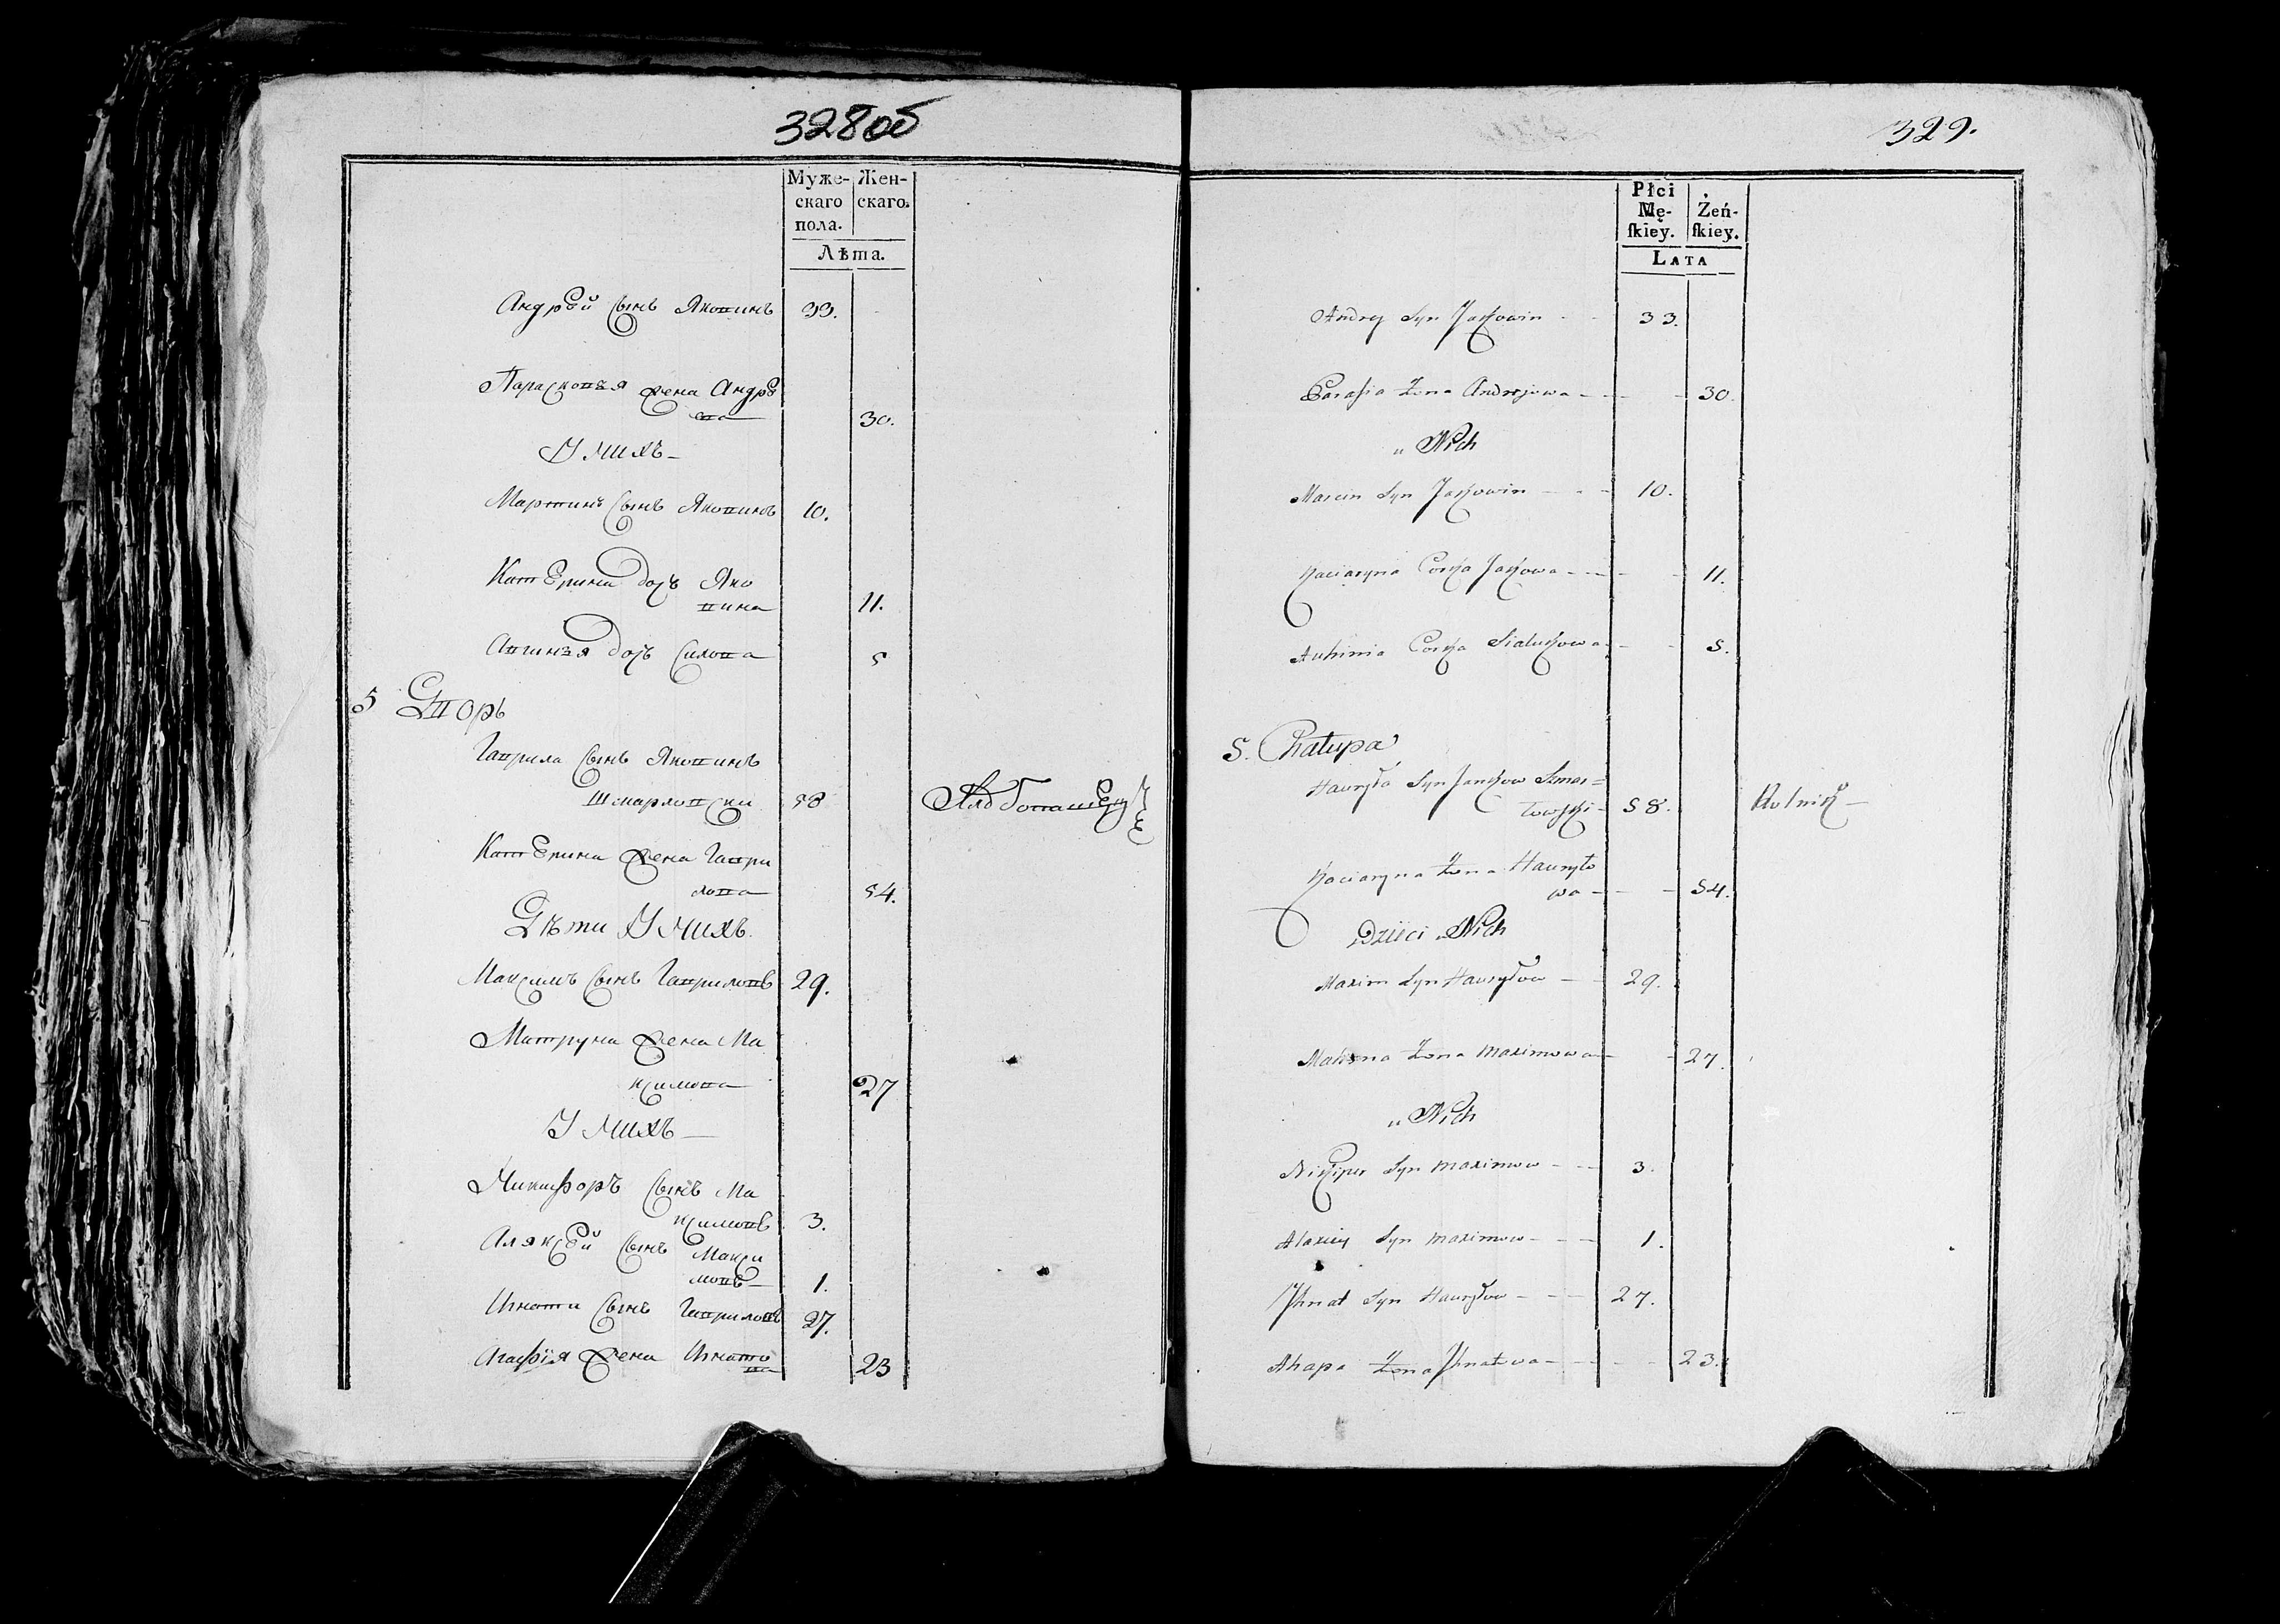 328об
Муже-
скаго
пола.
Жен-
скаго.
Лѣта.
Андрей сынъ Яковинъ 33.
Парасковья жена Андре
ева 30.
У нихъ
Мартинъ сынъ Яковинъ 10.
Катерина дочъ Яко
вина 11.
дочъ 5
5 Дворъ
Гаврила сынъ Яковинъ
58
Катерина жена Гаври
лова 54.
Дѣти У нихъ.
Максимъ сынъ Гавриловъ 29.
Матруна жена Ма
ксимова 27
У нихъ
Никифоръ сынъ Ма
ксимовъ 3.
Аляксей сынъ Макси
мовъ 1.
Игнати сынъ Гавриловъ 27.
Агафія жена Игнато
ва 23
329.
Płci
Mę-
ſkiey.
Żeń-
ſkiey.
Lata
Andrey Syn Jaśkowin 33.
Parasia Żona Andrejowa 30.
u Nich
Marcin Syn Jaśkowin 10.
Kaciaryna Corka Jaśkowa 11.
Auhinia Corka 5.
5. Chałupa
Hauryła Syn
58. Rolnik
Kaciaryna Żona Hauryło
wa 54.
Dzieci u Nich
Maxim Syn Hauryłow 29.
Żona Maximowa 27.
u Nich
Nikipor Syn Maximow 3.
Alaxiey Syn Maximow 1.
Ihnat Syn Hauryłow 27.
Ahapa Żona Ihnatowa 23.